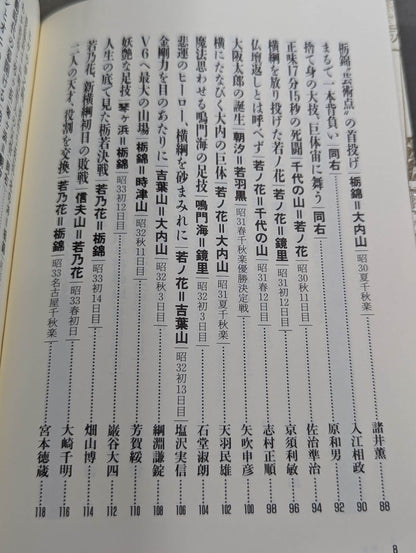 栃錦〝芸術点〟の首投げ 栃錦＝大内山 昭30夏千秋楽 諸井薫 88
まるで一本背負い 同右 入江相政 90
捨て身の大技、巨体宙に舞う 同右 原和男 92
正味17分15秒の死闘 千代の山＝若ノ花 昭31初11日目 佐治準治 94
横綱を放り投げた若ノ花 若ノ花＝鏡里 昭31初12日目 京須利敏 96
仏壇返しとは呼べず 若ノ花＝千代の山 昭31春12日目 志村正順 98
大阪太郎の誕生 朝汐＝若羽黒 昭31春千秋楽優勝決定戦 矢吹申彦 100
横にたなびく大内の巨体 若ノ花＝大内山 昭31夏千秋楽 天羽民雄 102
魔法思わせる鳴門海の足技 鳴門海＝鏡里 昭32初3日目 石堂淑朗 104
悲運のヒーロー、横綱を砂まみれに 若ノ花＝吉葉山 昭32初13日目 塩沢実信 106
金剛力を目のあたりに 吉葉山＝大内山 昭32秋3日目 綱淵謙錠 108
V6へ最大の山場 栃錦＝時津山 昭32秋11日目 芳賀綏 110
妖艶な足技 琴ヶ浜＝栃錦 昭33初12日目 巌谷大四 112
人生の底で見た栃若決戦 若乃花＝栃錦 昭33初14日目 畑山博 114
若乃花、新横綱初目の敗戦 信夫山＝若乃花 昭33春初日 大崎千明 116
二人の天才、役割を交換 若乃花＝栃錦 昭33名古屋千秋楽 宮本徳蔵 118
8